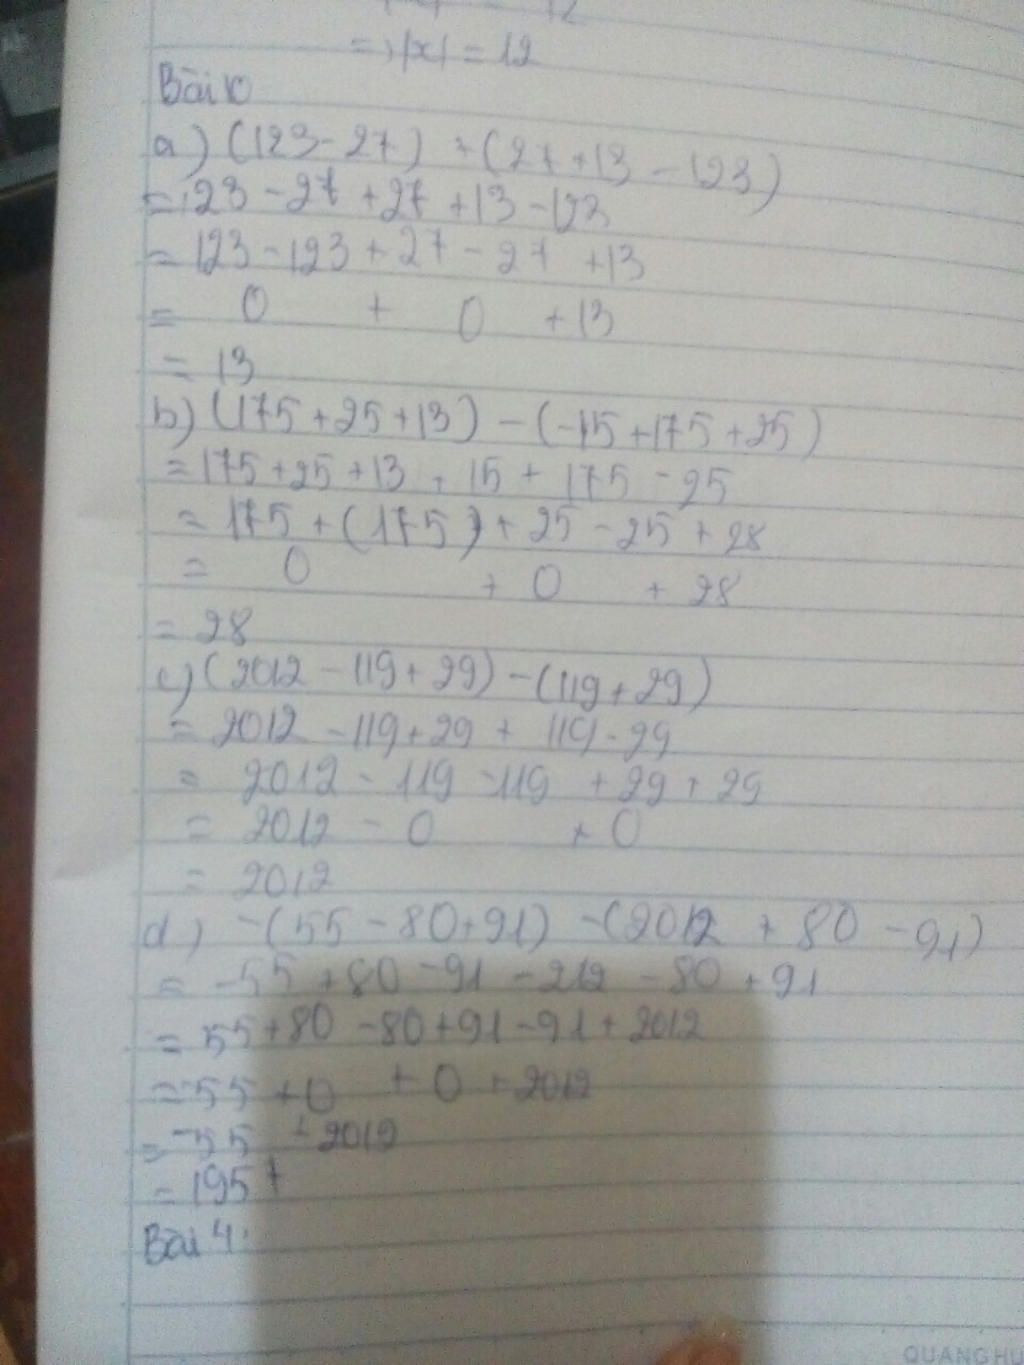 => |x| = 12
Bài 10
a) (123 - 27) + (27 + 13 - 123)
= 123 - 27 + 27 + 13 - 123
= 123 - 123 + 27 - 27 + 13
= 0 + 0 + 13
= 13
b) (175 + 25 + 13) - (-15 + 175 + 25)
= 175 + 25 + 13 + 15 + 175 - 25
= 175 + (175) + 25 - 25 + 28
= 0 + 0 + 28
= 28
c) (2012 - 119 + 29) - (119 + 29)
= 2012 - 119 + 29 + 119 - 29
= 2012 - 119 - 119 + 29 + 29
= 2012 - 0 + 0
= 2012
d) -(55 - 80 + 91) - (2012 + 80 - 91)
= -55 + 80 - 91 - 212 - 80 + 91
= 55 + 80 - 80 + 91 - 91 + 2012
= -55 + 0 + 0 + 2012
= -55 + 2012
= 1957
Bài 4:
QUANG HU